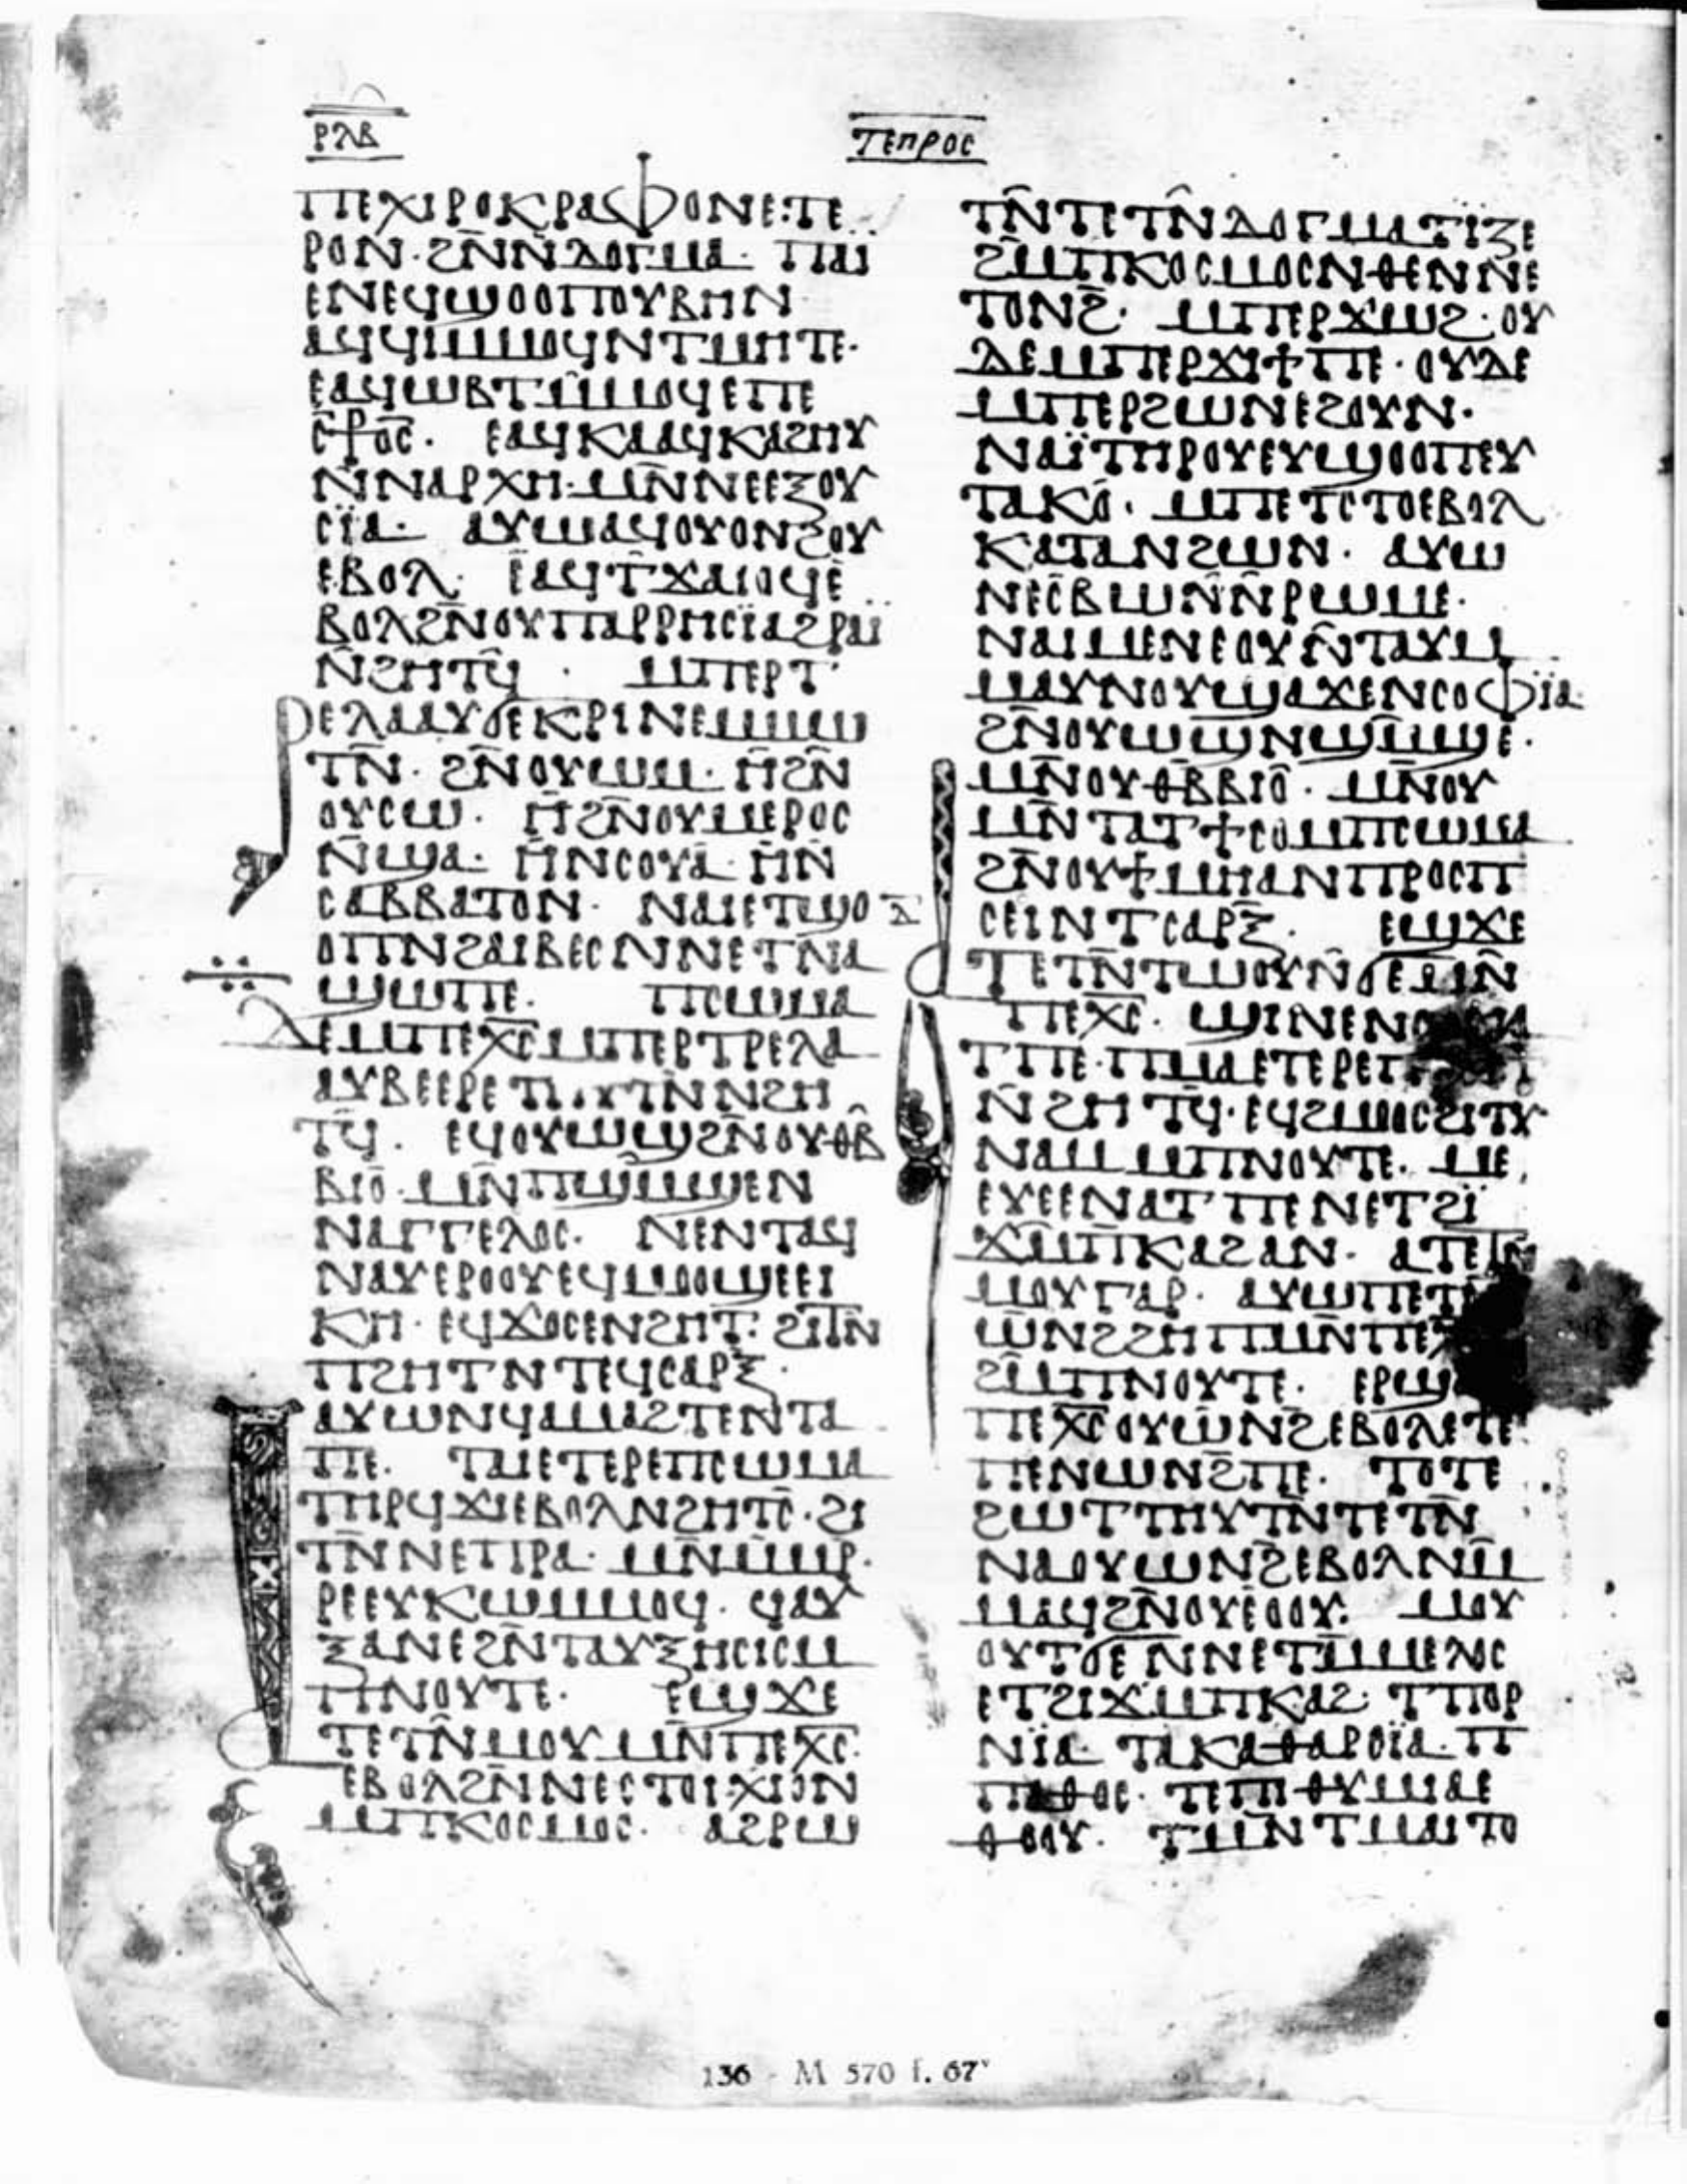 ⲣⲗⲃ
ⲧⲉⲡⲣⲟⲥ
ⲡⲉⲭⲓⲣⲟⲕⲣⲁⲫⲟⲛⲉ:ⲧⲉ
ⲣⲟⲛ· ϩⲛ̄ⲛ̄ⲇⲟⲅⲙⲁ· ⲡⲁⲓ̈
ⲉⲛⲉϥϣⲟⲟⲡⲟⲩⲃⲏⲛ
ⲁϥϥⲓⲙⲙⲟϥⲛⲧⲙⲏⲧⲉ·
ⲉⲁϥⲱⲃⲧⲙ̄ⲙⲟϥⲉⲡⲉ
ⲥ̄⳨ⲟⲥ̄· ⲉⲁϥⲕⲁⲁϥⲕⲁϩⲏⲩ
ⲛ̄ⲛⲁⲣⲭⲏ· ⲙⲛ̄ⲛⲉⲉⲝⲟⲩ
ⲥⲓ̈ⲁ· ⲁⲩⲱⲁϥⲟⲩⲟⲛϩⲟⲩ
ⲉⲃⲟⲗ· ⲉⲁϥⲧ̄ϫⲁⲓⲟϥⲉ
ⲃⲟⲗϩⲛ̄ⲟⲩⲡⲁⲣⲣⲏⲥⲓ̈ⲁϩⲣⲁⲓ̈
ⲛ̄ϩⲏⲧϥ̄· ⲙⲡⲉⲣⲧ
ⲣⲉⲗⲁⲁⲩϭⲉⲕⲣⲓⲛⲉⲙⲙⲱ
ⲧⲛ̄· ϩⲛ̄ⲟⲩⲱⲙ· ⲏ̄ϩⲛ̄
ⲟⲩⲥⲱ· ⲏ̄ϩⲛ̄ⲟⲩⲙⲉⲣⲟⲥ
ⲛ̄ϣⲁ· ⲏ̄ⲛⲥⲟⲩⲁ· ⲏ̄ⲛ̄
ⲥⲁⲃⲃⲁⲧⲟⲛ· ⲛⲁⲓⲉⲧϣⲟ
ⲟⲡⲛϩⲁⲓⲃⲉⲥⲛⲛⲉⲧⲛⲁ
ϣⲱⲡⲉ· ⲡⲥⲱⲙⲁ
ⲇⲉⲙⲡⲉⲭ̄ⲥ̄ⲙⲡⲉⲣⲧⲣⲉⲗⲁ
ⲁⲩⲃⲉⲉⲣⲉ
ⲧϥ̄· ⲉϥⲟⲩⲱϣϩⲛ̄ⲟⲩⲑⲃ̄
ⲃⲓⲟ̄· ⲙⲛ̄ⲡϣⲙ̄ϣⲉⲛ
ⲛⲁⲅⲅⲉⲗⲟⲥ· ⲛⲉⲛⲧⲁϥ
ⲛⲁⲩⲉⲣⲟⲟⲩⲉϥⲙⲟⲟϣⲉⲉⲓ
ⲕⲏ· ⲉϥϫⲟⲥⲉⲛϩⲏⲧ: ϩⲓⲧⲛ̄
ⲡϩⲏⲧⲛⲧⲉϥⲥⲁⲣⲝ̄·
ⲁⲩⲱⲛϥⲁⲙⲁϩⲧⲉⲛⲧⲁ
ⲡⲉ· ⲧⲁⲓⲉⲧⲉⲣⲉⲡⲥⲱⲙⲁ
ⲧⲏⲣϥϫⲓⲉⲃⲟⲗⲛϩⲏⲧⲥ̄· ϩⲓ
ⲧⲛ̄ⲛⲉⲧⲓⲣⲁ· ⲙⲛ̄ⲙ̄ⲙⲣ·
ⲣⲉⲉⲩⲕⲱⲙⲙⲟϥ· ϥⲁⲩ
ⲝⲁⲛⲉϩⲛ̄ⲧⲁⲩⲝⲏⲥⲓⲥⲙ
ⲡⲛⲟⲩⲧⲉ· ⲉϣϫⲉ
ⲧⲉⲧⲛ̄ⲙⲟⲩⲙⲛ̄ⲡⲉⲭ̄ⲥ̄·
ⲉⲃⲟⲗϩⲛ̄ⲛⲉⲥⲧⲟⲓⲭⲓⲟⲛ
ⲙⲡⲕⲟⲥⲙⲟⲥ· ⲁϩⲣⲱ
ⲧⲛ̄ⲧⲉⲧⲛ̄ⲇⲟⲅⲙⲁⲧⲓ̈ⲍⲉ
ϩⲙ̄ⲡⲕⲟⲥⲙⲟⲥⲛⲑⲉⲛⲛⲉ
ⲧⲟⲛϩ̄· ⲙⲡⲉⲣϫⲱϩ· ⲟⲩ
ⲇⲉⲙⲡⲉⲣϫⲓϯⲡⲉ· ⲟⲩⲇⲉ
ⲙⲡⲉⲣϩⲱⲛⲉϩⲟⲩⲛ·
ⲛⲁⲓ̈ⲧⲏⲣⲟⲩⲉⲩϣⲟⲟⲡⲉⲩ
ⲧⲁⲕⲟ· ⲙⲡⲉⲧⲥⲧⲟⲉⲃⲟⲗ
ⲕⲁⲧⲁⲛϩⲱⲛ· ⲁⲩⲱ
ⲛⲉⲥⲃⲱⲛ̄ⲛ̄ⲣⲱⲙⲉ·
ⲛⲁⲓⲙⲉⲛⲉⲟⲩⲛ̄ⲧⲁⲩⲙ
ⲙⲁⲩⲛⲟⲩϣⲁϫⲉⲛⲥⲟⲫⲓ̈ⲁ·
ϩⲛ̄ⲟⲩⲱϣⲛϣⲙ̄ϣⲉ·
ⲙⲛ̄ⲟⲩⲑⲃ̄ⲃⲓⲟ̄· ⲙⲛ̄ⲟⲩ
ⲙⲛ̄ⲧⲁⲧϯⲥⲟⲙⲡⲥⲱⲙⲁ
ϩⲛ̄ⲟⲩϯⲙⲏⲁⲛⲡⲣⲟⲥⲡ
ⲥⲉⲓⲛⲧⲥⲁⲣⲝ̄· ⲉϣϫⲉ
ⲧⲉⲧⲛ̄ⲧⲱⲟⲩⲛ̄ϭⲉⲙⲛ̄
ⲡⲉⲭ̄ⲥ̄· ϣⲓⲛⲉⲛⲉⲛ
ⲧⲡⲉ· ⲡⲙⲁⲉⲧⲉⲣⲉ
ⲛ̄ϩⲏⲧϥ̄· ⲉϥϩⲙⲟⲟⲥϩⲓⲧⲟⲩ
ⲛⲁⲙⲙⲡⲛⲟⲩⲧⲉ· ⲙⲉ
ⲉⲩⲉⲉⲛⲁⲧⲡⲉⲛⲉⲧϩⲓ̈
ϫⲙ̄ⲡⲕⲁϩⲁⲛ· ⲁⲧⲉⲧⲛ̄
ⲙⲟⲩⲅⲁⲣ· ⲁⲩⲱⲡⲉⲧⲛ̄
ⲱⲛϩϩⲏⲡⲙⲛ̄ⲡⲉⲭ
ϩⲙ̄ⲡⲛⲟⲩⲧⲉ· ⲉⲣϣ
ⲡⲉⲭ̄ⲥ̄ⲟⲩⲱⲛϩⲉⲃⲟⲗⲉⲧⲉ
ⲡⲉⲛⲱⲛϩ̄ⲡⲉ· ⲧⲟⲧⲉ
ϩⲱⲧⲧⲏⲩⲧⲛ̄ⲧⲉⲧⲛ̄
ⲛⲁⲟⲩⲱⲛϩⲉⲃⲟⲗⲛⲙ̄
ⲙⲁϥϩⲛ̄ⲟⲩⲉⲟⲟⲩ· ⲙⲟⲩ
ⲟⲩⲧϭⲉⲛⲛⲉⲧⲙ̄ⲙⲉⲗⲟⲥ
ⲉⲧϩⲓϫⲙⲡⲕⲁϩ· ⲧⲡⲟⲣ
ⲛⲓ̈ⲁ· ⲧⲁⲕⲁⲑⲁⲣⲥⲓ̈ⲁ· ⲡ
ⲡⲁⲑⲟⲥ· ⲧⲉⲡⲓⲑⲩⲙⲓⲁⲉ
ⲑⲟⲟⲩ· ⲧⲙⲛ̄ⲧⲙⲁⲓⲧⲟ
136 - M 570 f. 67ᵛ